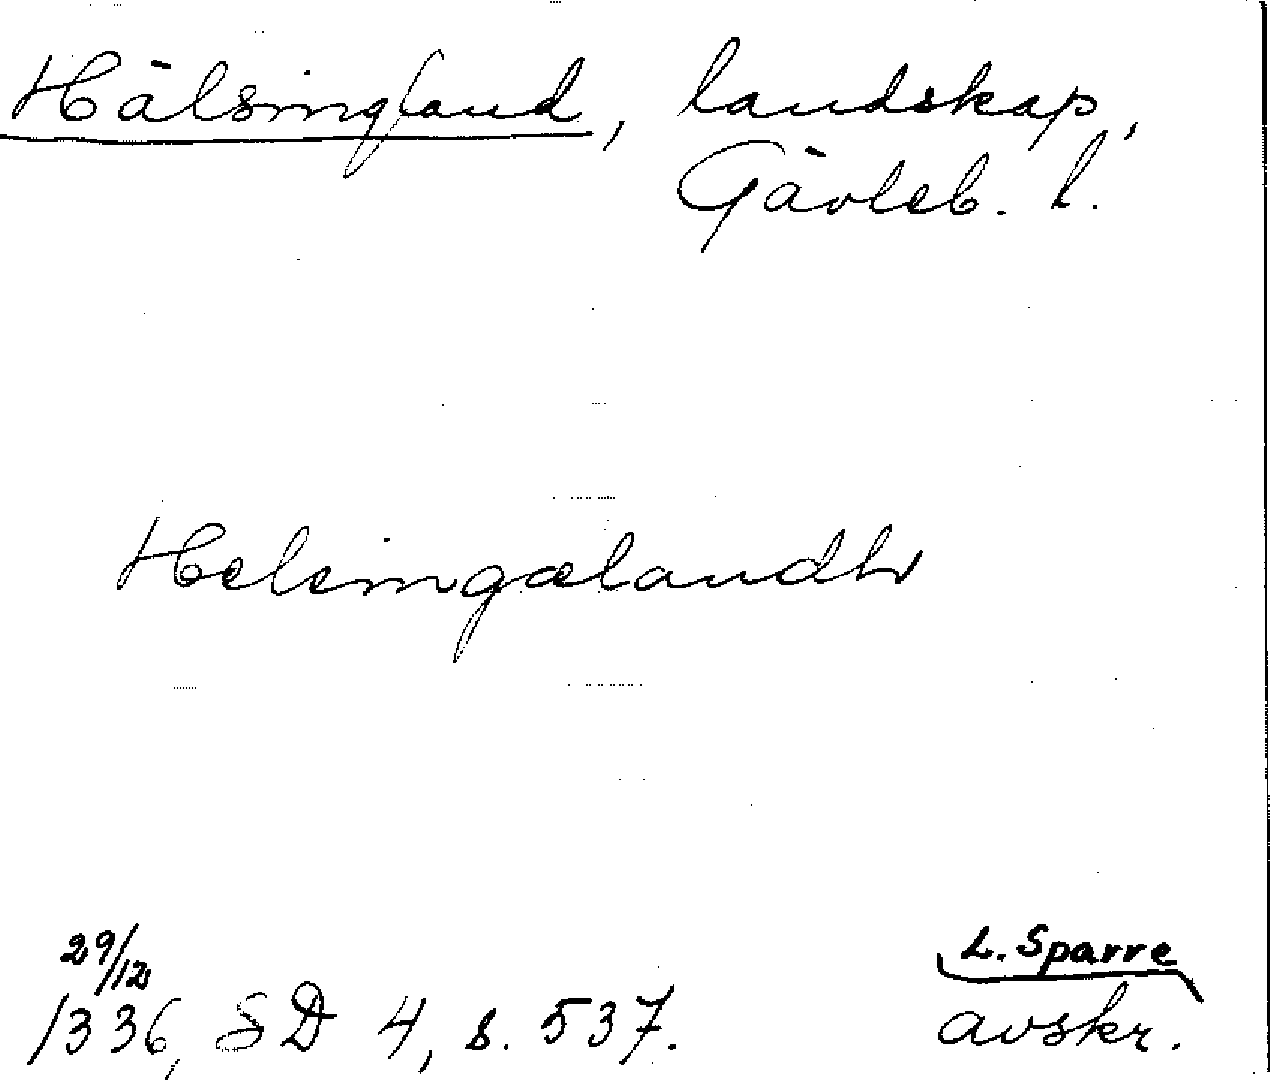 Hälsingland, landskap,
Gävleb. l.
Helsingælandh
29/12
1336, SD 4, s. 537.
L. Sparre
avskr.